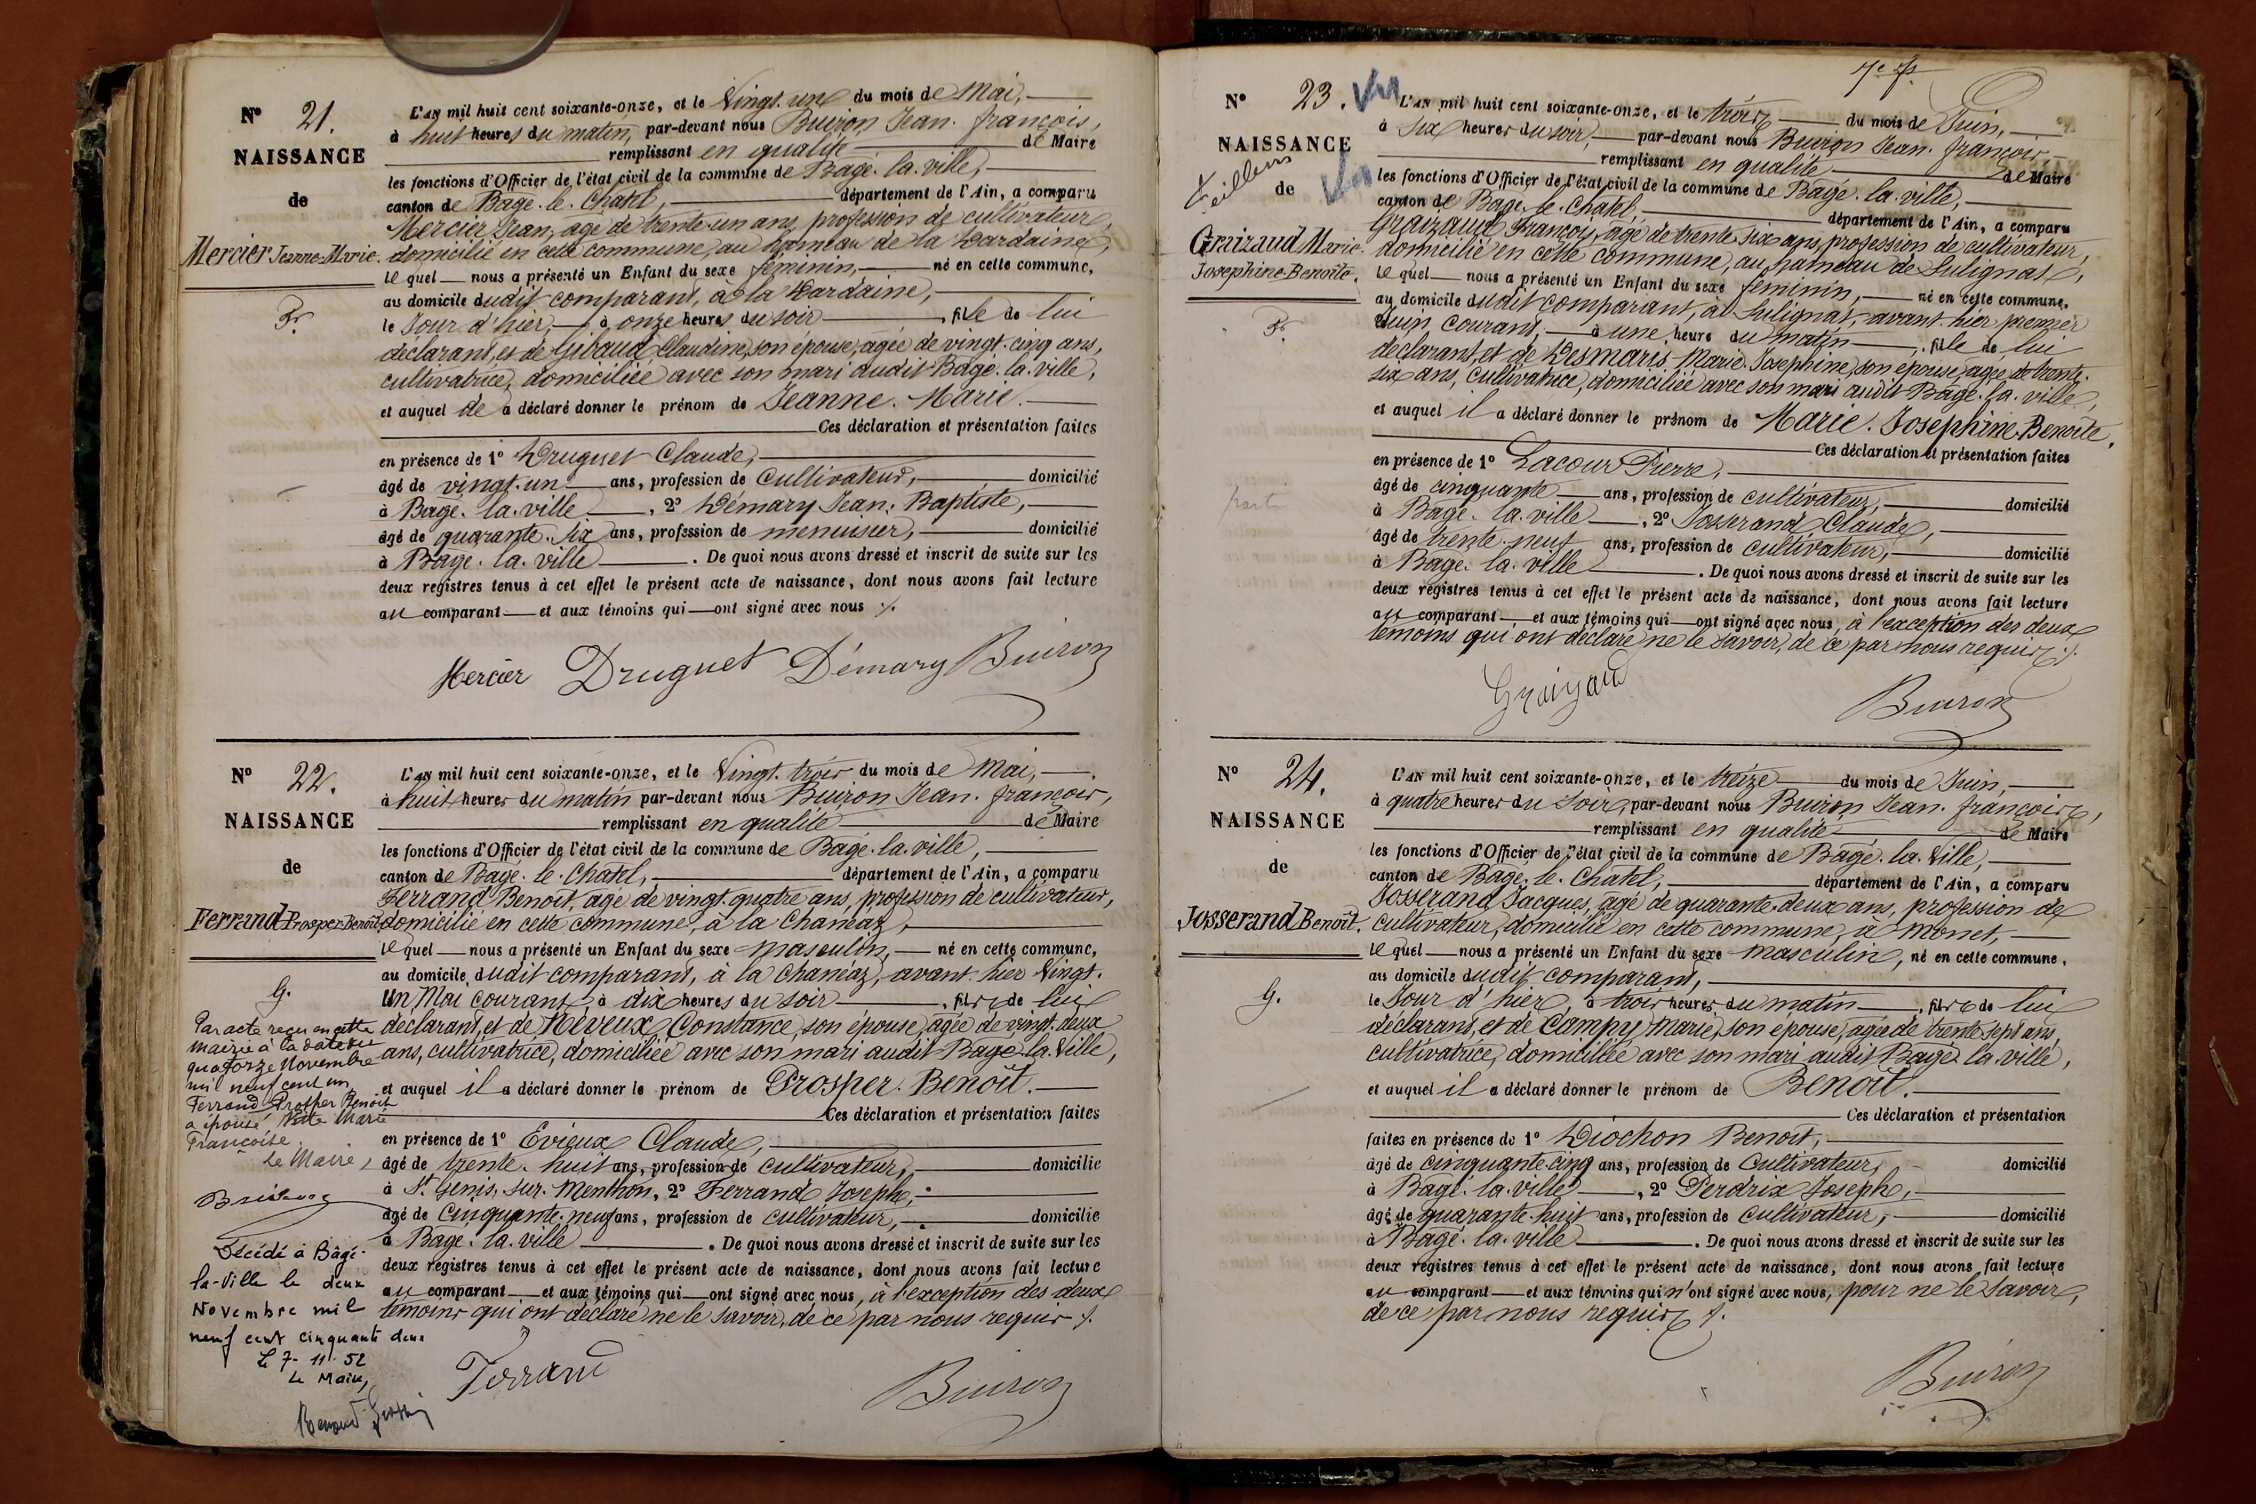 N° 21.
NAISSANCE
de
Mercier Jeanne-Marie.
Fr.
L'AN mil huit cent soixante-onze, et le Vingt-un du mois de Mai,
à huit heures du matin, par-devant nous Buiron Jean-françois,
remplissant en qualité de Maire
les fonctions d'Officier de l'état civil de la commune de Bagé-la-ville,
canton de Bagé-le-Chatel, département de l'Ain, a comparu
Mercier Jean, âgé de trente-un ans, profession de cultivateur,
domicilié en cette commune, au hameau de la Dardaine,
le quel nous a présenté un Enfant du sexe féminin, né en cette commune,
au domicile dudit comparant, à la Dardaine,
le Jour d'hier, à onze heures du soir, fille de lui
déclarant, et de Gibaud Claudine, son épouse, agée de vingt-cinq ans,
cultivatrice, domiciliée avec son mari audit Bagé-la-ville,
et auquel de a déclaré donner le prénom de Jeanne-Marie.
Ces déclaration et présentation faites
en présence de 1° Druguet Claude,
âgé de vingt-un ans, profession de Cultivateur, domicilié
à Bagé-la-ville, 2° Démary Jean-Baptiste,
âgé de quarante-six ans, profession de menuisier, domicilié
à Bagé-la-ville. De quoi nous avons dressé et inscrit de suite sur les
deux registres tenus à cet effet le présent acte de naissance, dont nous avons fait lecture
au comparant et aux témoins qui ont signé avec nous ./.
Mercier Druguet Démary Buiron
N° 22.
NAISSANCE
de
Ferrand Prosper-Benoît
G.
Par acte reçu en cette
mairie à la date du
quatorze Novembre
mil neuf cent un
Ferrand Prosper Benoît
a épousé Marie
Françoise.
Le Maire,
Décédé à Bâgé-
la-Ville le deux
Novembre mil
neuf cent cinquante deux
Le 7-11-52
Le Maire,
L'AN mil huit cent soixante-onze, et le Vingt-trois du mois de Mai,
à huit heures du matin par-devant nous Buiron Jean-françois,
remplissant en qualité de Maire
les fonctions d'Officier de l'état civil de la commune de Bagé-la-ville,
canton de Bagé-le-Chatel, département de l'Ain, a comparu
Ferrand Benoit, âgé de vingt-quatre ans, profession de cultivateur,
domicilié en cette commune, à la Chanéaz,
le quel nous a présenté un Enfant du sexe masculin, né en cette commune,
au domicile dudit comparant, à la Chanéaz, avant-hier Vingt-
Un Mai courant, à dix heures du soir, fils de lui
déclarant, et de Néveux Constance, son épouse, agée de vingt-deux
ans, cultivatrice, domiciliée avec son mari audit Bagé-la-Ville,
et auquel il a déclaré donner le prénom de Prosper-Benoît.
Ces déclaration et présentation faites
en présence de 1° Evieux Claude,
âgé de trente-huit ans, profession de cultivateur, domicilié
à St Genis-sur-Menthon, 2° Ferrand Joseph,
âgé de Cinquante-neuf ans, profession de cultivateur, domicilié
à Bagé-la-ville. De quoi nous avons dressé et inscrit de suite sur les
deux registres tenus à cet effet le présent acte de naissance, dont nous avons fait lecture
au comparant et aux témoins qui ont signé avec nous, à l'exception des deux
témoins qui ont déclaré ne le savoir, de ce par nous requis ./.
Ferrand Buiron
N° 23.
Vu
NAISSANCE
de
Vu
Graizaud Marie-
Josephine-Benoite.
Fr.
L'AN mil huit cent soixante-onze, et le trois du mois de Juin,
à six heures du soir, par-devant nous Buiron Jean-françois,
remplissant en qualité de Maire
les fonctions d'Officier de l'état civil de la commune de Bagé-la-ville,
canton de Bagé-le-Chatel, département de l'Ain, a comparu
Graizaud François, âgé de trente-six ans, profession de cultivateur,
domicilié en cette commune, au hameau de Sulignat,
le quel nous a présenté un Enfant du sexe féminin, né en cette commune,
au domicile dudit comparant, à Sulignat, avant-hier premier
Juin courant, à une heure du matin, fille de lui
déclarant, et de Desmaris Marie-Josephine, son épouse, agée de trente-
six ans, cultivatrice, domiciliée avec son mari audit Bagé-la-ville,
et auquel il a déclaré donner le prénom de Marie-Josephine-Benoite.
Ces déclaration et présentation faites
en présence de 1° Lacour Pierre,
âgé de cinquante ans, profession de cultivateur, domicilié
à Bagé-la-ville, 2° Josserand Claude,
âgé de trente-neuf ans, profession de cultivateur, domicilié
à Bagé-la-ville. De quoi nous avons dressé et inscrit de suite sur les
deux registres tenus à cet effet le présent acte de naissance, dont nous avons fait lecture
au comparant et aux témoins qui ont signé avec nous, à l'exception des deux
témoins qui ont déclaré ne le savoir, de ce par nous requis ./.
Graizaud Buiron
N° 24.
NAISSANCE
de
Josserand Benoît.
G.
L'AN mil huit cent soixante-onze, et le treize du mois de Juin,
à quatre heures du soir, par-devant nous Buiron Jean-françois,
remplissant en qualité de Maire
les fonctions d'Officier de l'état civil de la commune de Bagé-la-Ville,
canton de Bagé-le-Chatel, département de l'Ain, a comparu
Josserand Jacques, âgé de quarante-deux ans, profession de
cultivateur, domicilié en cette commune, à Monet,
le quel nous a présenté un Enfant du sexe masculin, né en cette commune,
au domicile dudit comparant,
le Jour d'hier, à trois heures du matin, fils de lui
déclarant, et de Compy Marie, son épouse, agée de trente-sept ans,
cultivatrice, domiciliée avec son mari audit Bagé-la-ville,
et auquel il a déclaré donner le prénom de Benoît.
Ces déclaration et présentation
faites en présence de 1° Diochon Benoit,
âgé de cinquante-cinq ans, profession de Cultivateur, domicilié
à Bagé-la-ville, 2° Perdrix Joseph,
âgé de quarante-huit ans, profession de cultivateur, domicilié
à Bagé-la-ville. De quoi nous avons dressé et inscrit de suite sur les
deux registres tenus à cet effet le présent acte de naissance, dont nous avons fait lecture
au comparant et aux témoins qui n'ont signé avec nous, pour ne le savoir,
de ce par nous requis ./.
Buiron